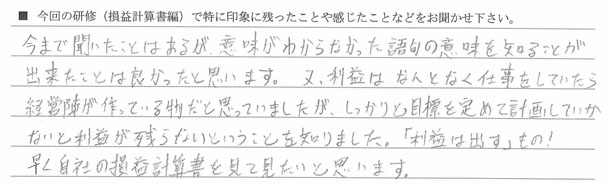 ■ 今回の研修（損益計算書編）で特に印象に残ったことや感じたことなどをお聞かせ下さい。
今まで聞いたことはあるが、意味がわからなかった語句の意味を知ることが
出来たことは良かったと思います。又、利益はなんとなく仕事をしていたら
経営陣が作っている物だと思っていましたが、しっかりと目標を定めて計画していか
ないと利益が残らないということを知りました。「利益は出す」もの！
早く自社の損益計算書を見て見たいと思います。